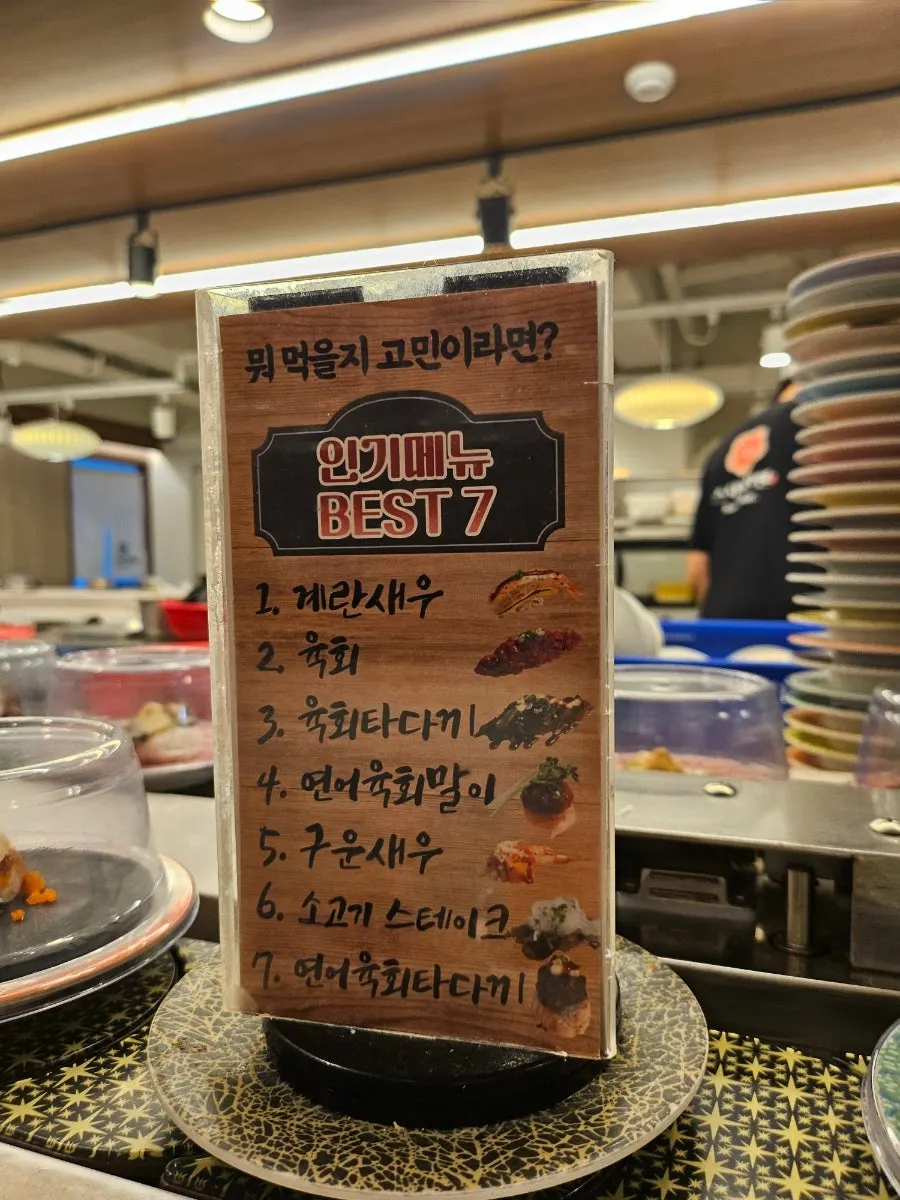 뭐 먹을지 고민이라면?
인기메뉴
BEST 7
1. 계란새우
2. 육회
3. 육회타다끼
4. 연어육회말이
5. 구운새우
6. 소고기 스테이크
7. 연어육회타다끼